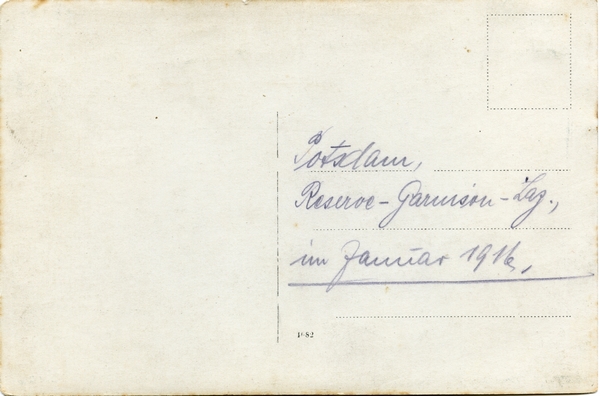 Potsdam,
Reserve-Garnison-Laz.,
im Januar 1916,